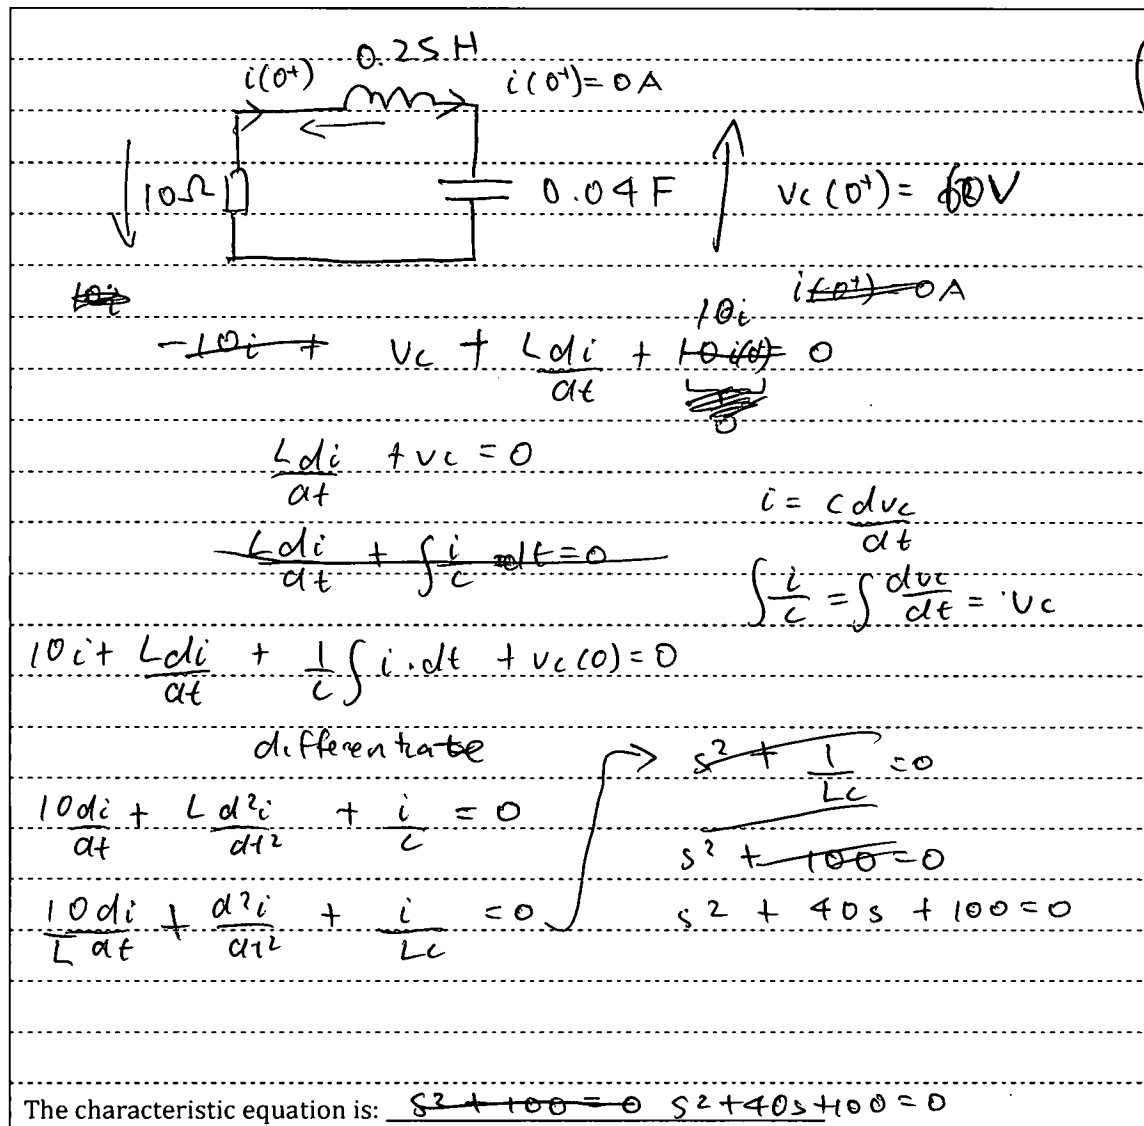 0.25 H
i(0⁺) i(0⁺) = 0 A
10Ω 0.04 F vc(0⁺) = 60V
10i i(0⁺) = 0A
10i
-10i + vc + L di/dt + 10 i(0) = 0
0
L di/dt + vc = 0
i = c dvc/dt
L di/dt + ∫ i/c dt = 0
∫ i/c = ∫ dvc/dt = vc
10i + L di/dt + 1/c ∫ i.dt + vc(0) = 0
differentiate
s² + 1/Lc = 0
10 di/dt + L d²i/dt² + i/c = 0
s² + 100 = 0
10/L di/dt + d²i/dt² + i/Lc = 0 s² + 40s + 100 = 0
The characteristic equation is: s² + 100 = 0 s² + 40s + 100 = 0